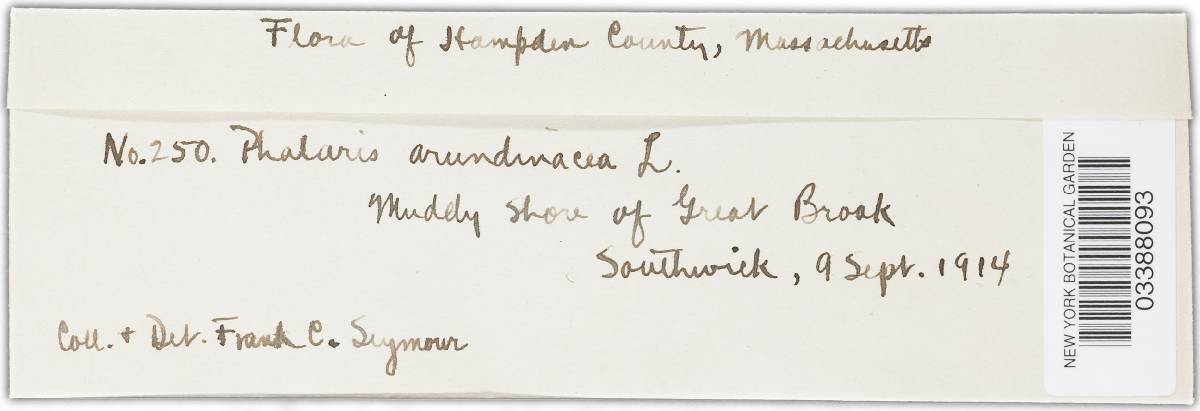 Flora of Hampden County, Massachusetts
No. 250. Phalaris arundinacea L.
Muddy shore of Great Brook
Southwick, 9 Sept. 1914
Coll. + Det. Frank C. Seymour
NEW YORK BOTANICAL GARDEN
03388093